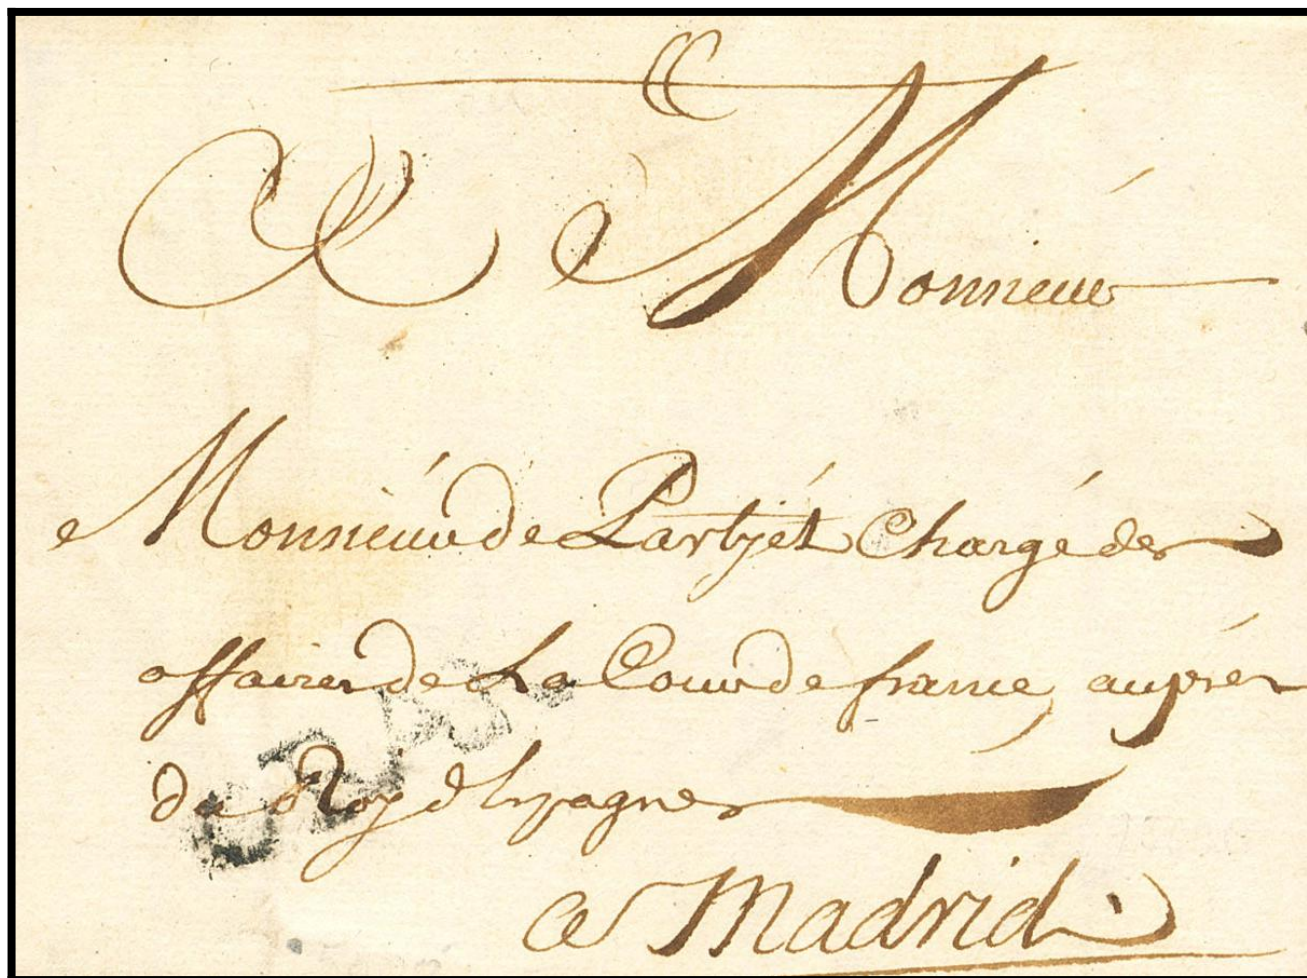 A Monsieur
Monsieur de Partyet Chargé des
affaires de La Cour de france, auprés
du Roy d'Espagne
a Madrid